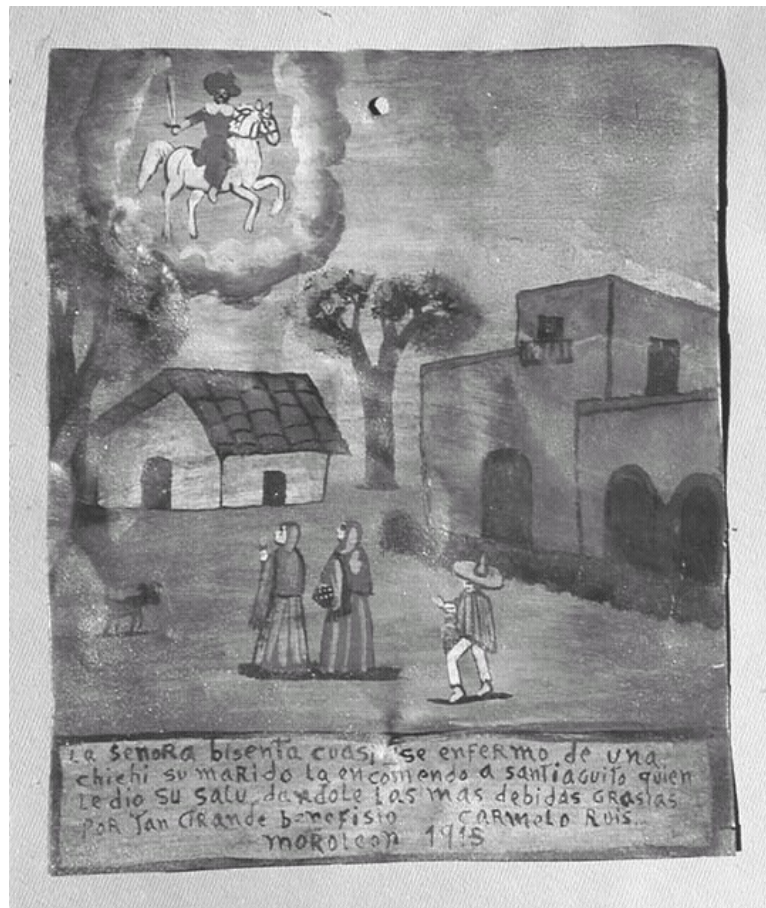 La SENORA bisenta cuasi se enfermo de una
chichi su marido la encomendo a santiaguito quien
Le dio SU SaLU, dandole Las mas debidas GRasias
POR Tan GRande benefisio CARMELO RUIS..
MOROLEON 1915